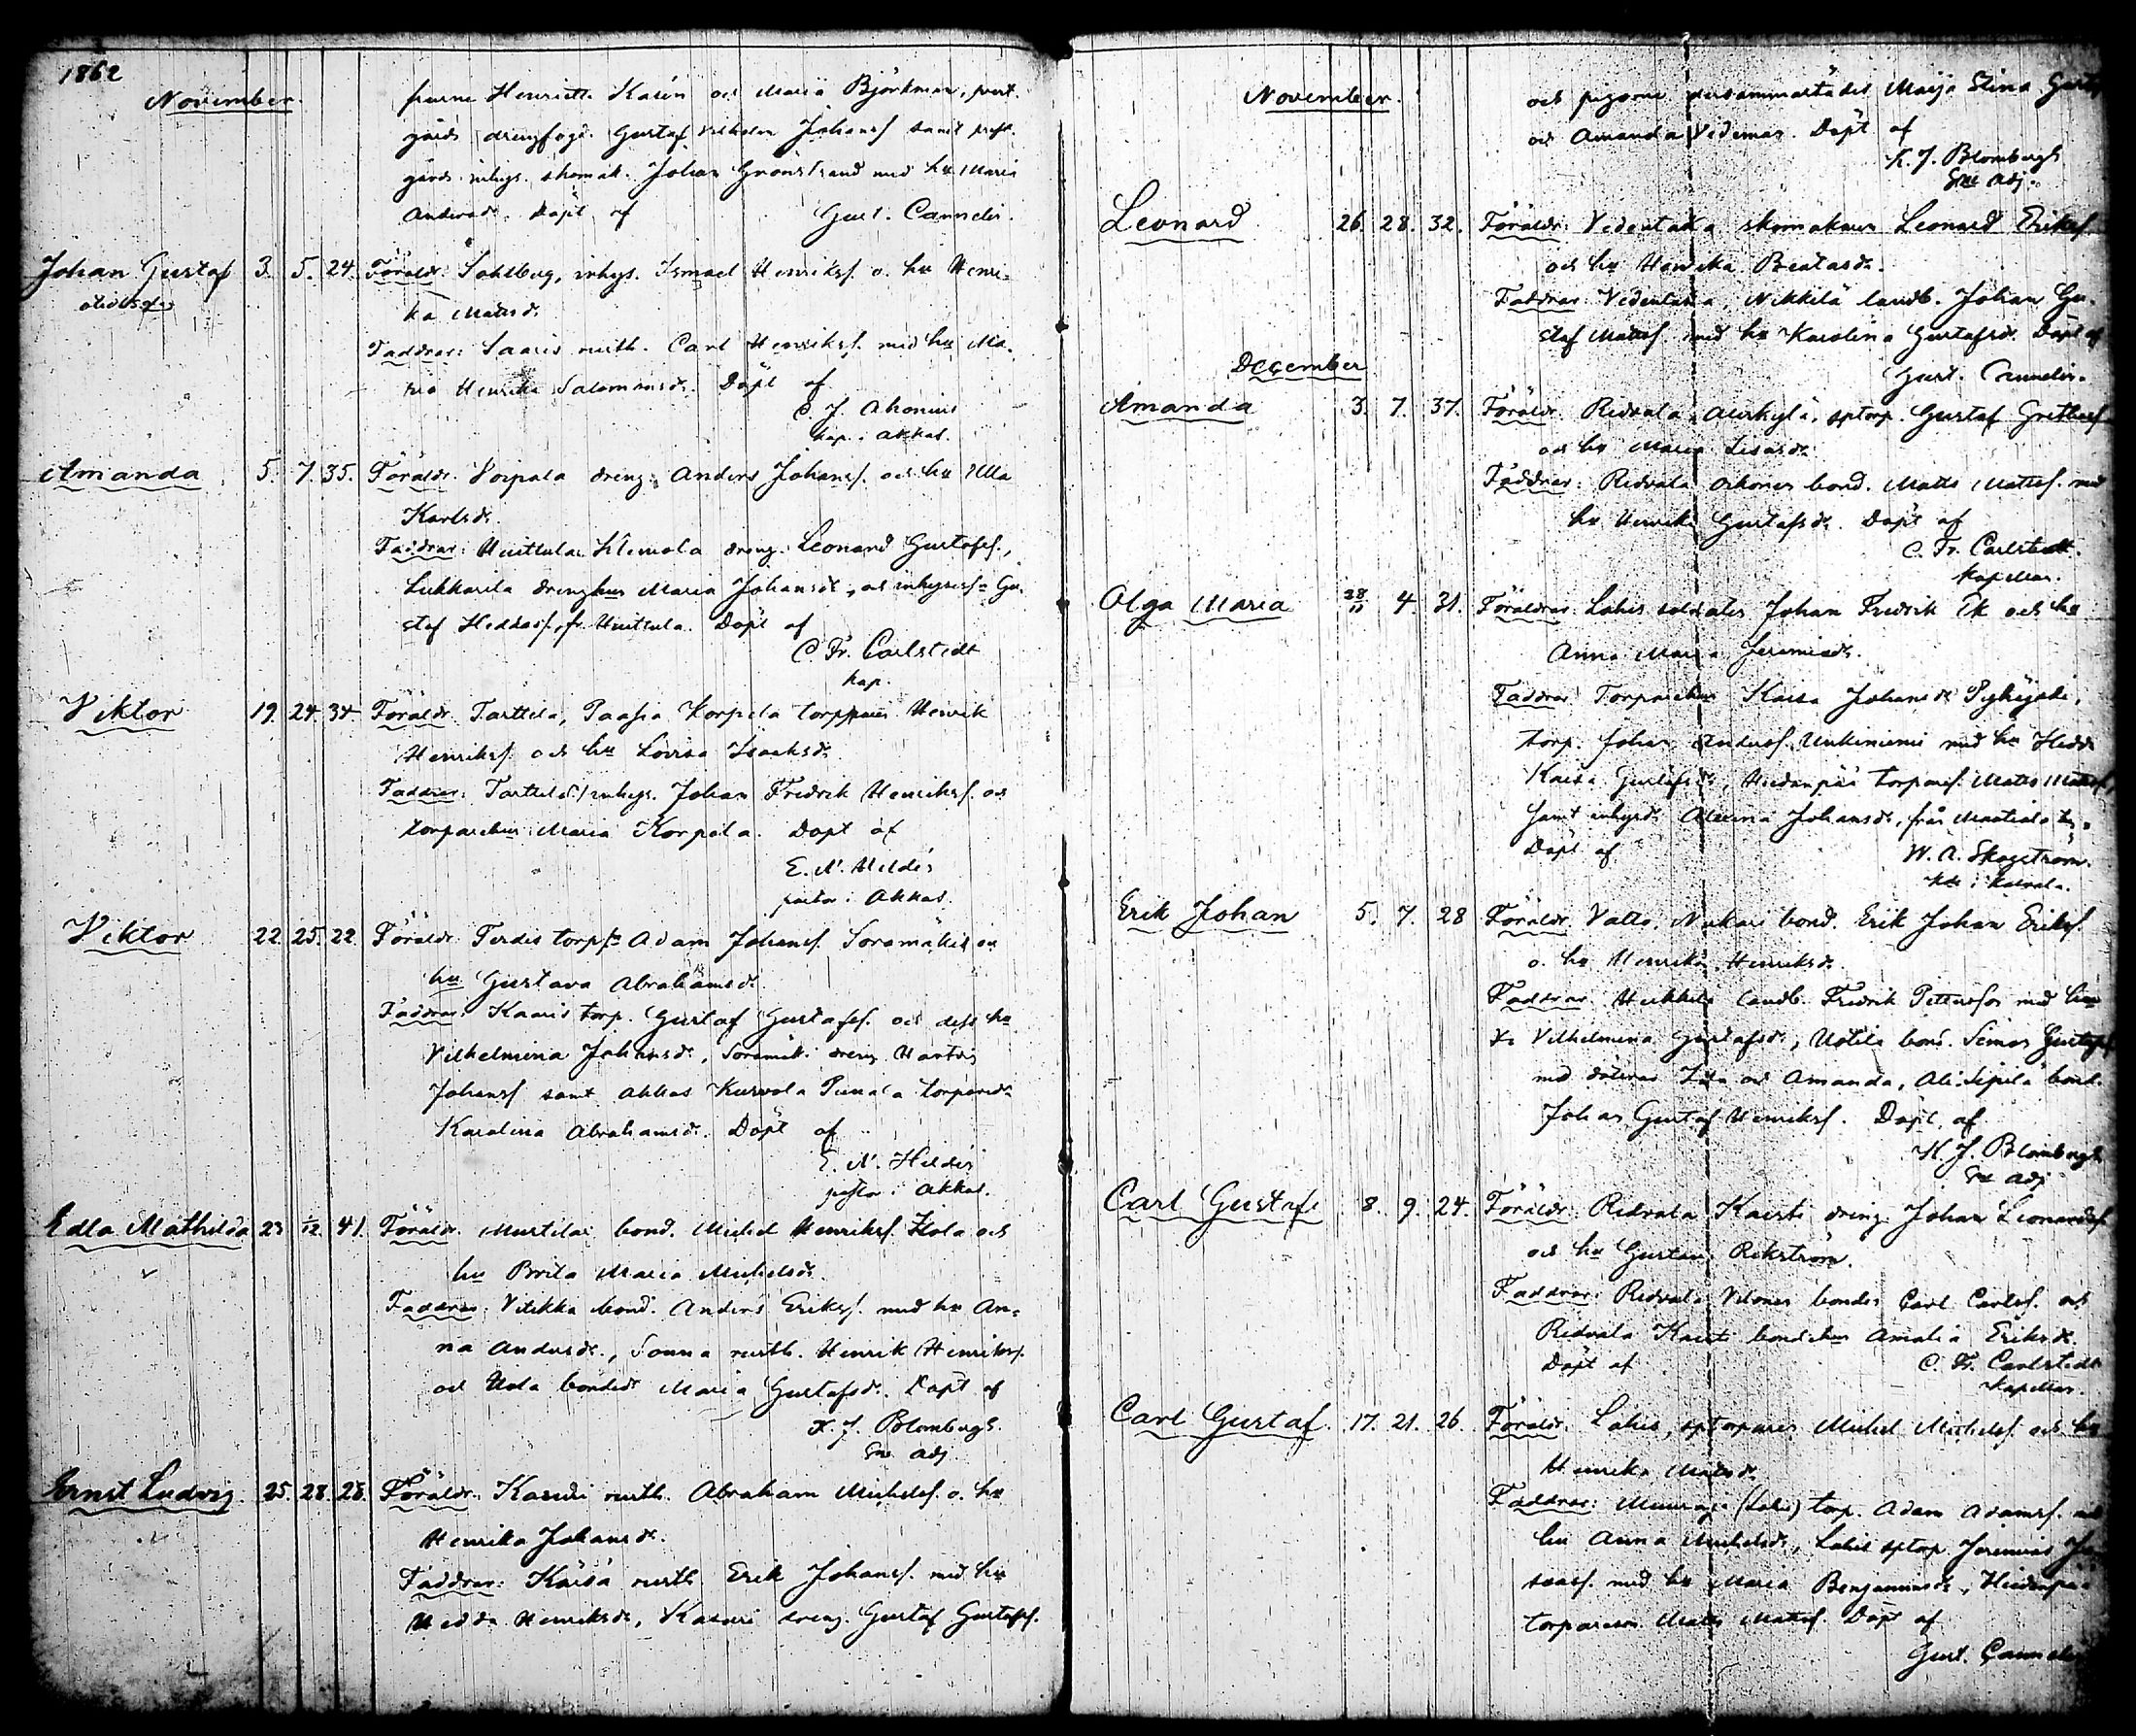 1862
November.
fruarne Henriette Karén och Maria Björkman, prest-
gårds drengfogd. Gustaf Vilhelm Johansf samt prest-
gårds inhys. skomak. Johan Grönstrand med hu Maria
Andersdr. Döpt af Gust. Cannelin.
Johan Gustaf 3. 5. 24. Föräldr: Sahlberg, inhys. Ismael Henriksf. o. hu Henri-
ka Matsdr.
Faddrar: Saaris rusth. Carl Henriksf. med hu Ma-
ria Henrika Salomonsdr. Döpt af
C. J. Ahonius
kap. i Akkas.
Amanda 5. 7. 35. Föräldr: Vorpala dreng. Anders Johansf. och hu Ulla
Karlsdr.
Faddrar: Huittula Klemola dreng. Leonard Gustafsf.,
Lukkarila drenghus Maria Johansdr, och inhysesf. Gu-
staf Heddasf. fr. Huittula. Döpt af
C. Fr. Carlstedt
kap.
Viktor 19. 24. 34 Föräldr. Tarttila, Paasia Korpela torpparen Henrik
Henriksf. och hu Lovisa Isaksdr.
Faddrar: Tarttila inhys. Johan Fredrik Henriksf. och
torparehus Maria Korpela. Döpt af
E. N. Heldér
pastor i Akkas.
Viktor 22. 25. 22. Föräldr. Terdis torpf Adam Johansf. Soramäki och
hu Gustava Abrahamsdr.
Faddrar: Kaaris torp. Gustaf Gustafsf. och dess hu
Vilhelmina Johansdr., Soramäki dreng Hartvig
Johansf samt Akkas Kurvola Punala torparedr
Karolina Abrahamsdr. Döpt af
E. N. Heldér
pastor i Akkas.
Edla Mathilda 23 1/12 41. Föräldr. Murtilas bond. Michel Henriksf. Hola och
hu Brita Maria Michelsdr.
Faddrar: Vitikka bond. Anders Eriksf. med hu An-
na Andersdr., Sonna rusth. Henrik Henriksf.
och Uola bondedr Maria Gustafsdr. Döpt af
K. J. Blombergh.
Exe Adj.
Ernst Ludvig. 25. 28. 28. Föräldr. Kasuri rusth. Abraham Michelsf. o. hu
Henrika Johansdr.
Faddrar: Kaisa rusth. Erik Johansf. med hu
Hedda Henriksdr, Kasuri dreng. Gustaf Gustafsf.
November.
och pigorna dersammastädes Maija Stina Gust
och Amanda Vidman. Döpt af
K. J. Blombergh
Exe adj.
Leonard 26. 28. 32. Föräldr: Videntaka skomakaren Leonard Eriksf.
och hu Henrika Beatasdr.
Faddrar: Videntaka, Nikkilä landb. Johan Gu-
staf Mattsf. med hu Karolina Gustafsdr. Döpt af
Gust. Cannelin.
December
Amanda 3. 7. 37. Föräldr. Ridvala, Alirkylä, sptorp. Gustaf
och hu Maria Lisasdr.
Faddrar: Ridvala Oikones bond. Matts Mattsf. med
hu Henrika Gustafsdr. Döpt af
C. Fr. Carlstedt.
Kapellan.
Olga Maria 28/11 4 31. Föräldrar: Lahis soldaten Johan Fredrik Ek och hu
Anna Maria Jeremiasdr.
Faddrar: Torparehus Kaisa Johansdr
torp. Johan Andersf. Unkiniemi med hu Hedda
Kaisa Gustafsdr, Hiedanpää torparef. Matts Mattsf.
samt inhysdr Alvina Johansdr., från Mattiala by.
Döpt af W. A. Skogström.
Erik Johan 5. 7. 28 Föräldr. Vatto, Nukari bond. Erik Johan Eriksf.
o. hu Henrika Henriksdr.
Faddrar: Heikkilä landb. Fredrik Pettersson med hu-
Vilhelmina Gustafsdr, Uotila bond. Simon Gustafsf
med döttrar Ida och Amanda, Ali-Sipilä bond.
Johan Gustaf Henriksf. Döpt af
K. J. Blombergh
Exe adj
Carl Gustaf 8. 9. 24. Föräldr. Ridvala Kaisti dreng Johan Leonardsf.
och hu Gustava Rikström.
Faddrar: Ridvala Vilones bonden Carl Carlsf. och
Ridvala Kaisti bondehus Amalia Eriksdr.
Döpt af C. Fr. Carlstedt
Kapellan.
Carl Gustaf. 17. 21. 26. Föräldr. Lahis, sptorparen Michel Michelsf. och hu
Henrika Matsdr.
Faddrar: (Lahis) torp. Adam Adamsf. med
hu Anna Michelsdr, Lahis sptorp. Jeremias
med hu Maria Benjaminsdr, Hiedanpää
torpareson Matts Mattsf. Döpt af
Gust. Cannelin